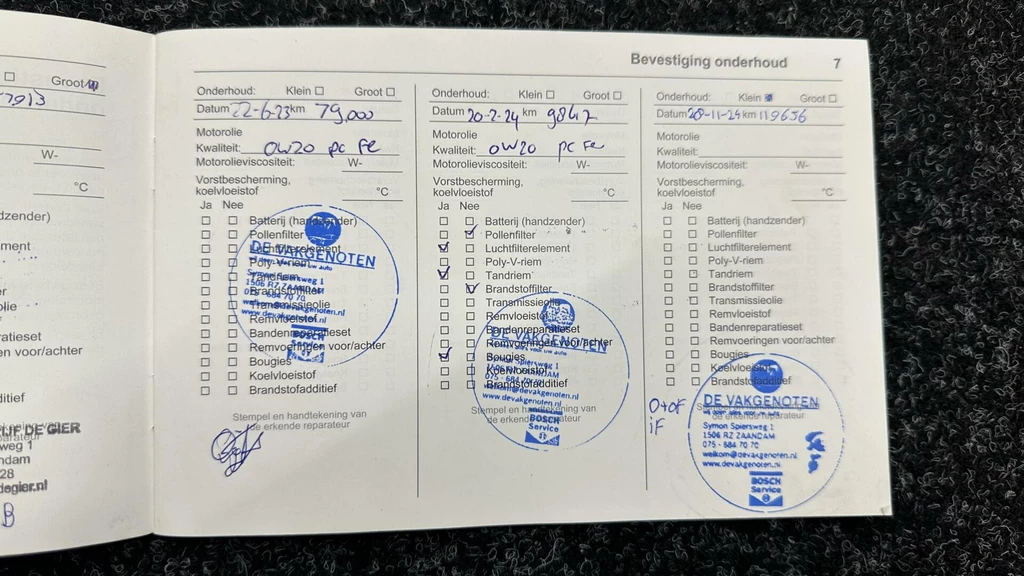 Groot
7913
W-
°C
dzender)
ement
olie
eset
en voor/achter
ditief
JF DE GIER
weg 1
ndam
28
degier.nl
Bevestiging onderhoud 7
Onderhoud: Klein Groot
Datum 22-6-23 km 79,000
Motorolie
Kwaliteit: 0W20 pc Fe
Motorolieviscositeit: W-
Vorstbescherming,
koelvloeistof °C
Ja Nee
Batterij (handzender)
Pollenfilter
Luchtfilterelement
Poly-V-riem
Tandriem
Brandstoffilter
Transmissieolie
Remvloeistof
Bandenreparatieset
Remvoeringen voor/achter
Bougies
Koelvloeistof
Brandstofadditief
Stempel en handtekening van
de erkende reparateur
DE VAKGENOTEN
Symon Spiersweg 1
1506 RZ ZAANDAM
075 - 684 70 70
welkom@devakgenoten.nl
www.devakgenoten.nl
BOSCH
Service
Onderhoud: Klein Groot
Datum 20-2-24 km 9847
Motorolie
Kwaliteit: 0W20 pc Fe
Motorolieviscositeit: W-
Vorstbescherming,
koelvloeistof °C
Ja Nee
Batterij (handzender)
Pollenfilter
Luchtfilterelement
Poly-V-riem
Tandriem
Brandstoffilter
Transmissieolie
Remvloeistof
Bandenreparatieset
Remvoeringen voor/achter
Bougies
Koelvloeistof
Brandstofadditief
Stempel en handtekening van
de erkende reparateur
DE VAKGENOTEN
alles voor uw auto
Symon Spiersweg 1
1506 RZ ZAANDAM
075 - 684 70 70
welkom@devakgenoten.nl
www.devakgenoten.nl
BOSCH
Service
Onderhoud: Klein Groot
Datum 28-11-24 km 119656
Motorolie
Kwaliteit:
Motorolieviscositeit: W-
Vorstbescherming,
koelvloeistof °C
Ja Nee
Batterij (handzender)
Pollenfilter
Luchtfilterelement
Poly-V-riem
Tandriem
Brandstoffilter
Transmissieolie
Remvloeistof
Bandenreparatieset
Remvoeringen voor/achter
Bougies
Koelvloeistof
Brandstofadditief
O+OF
iF
de erkende reparateur
DE VAKGENOTEN
Symon Spiersweg 1
1506 RZ ZAANDAM
075 - 684 70 70
welkom@devakgenoten.nl
www.devakgenoten.nl
BOSCH
Service